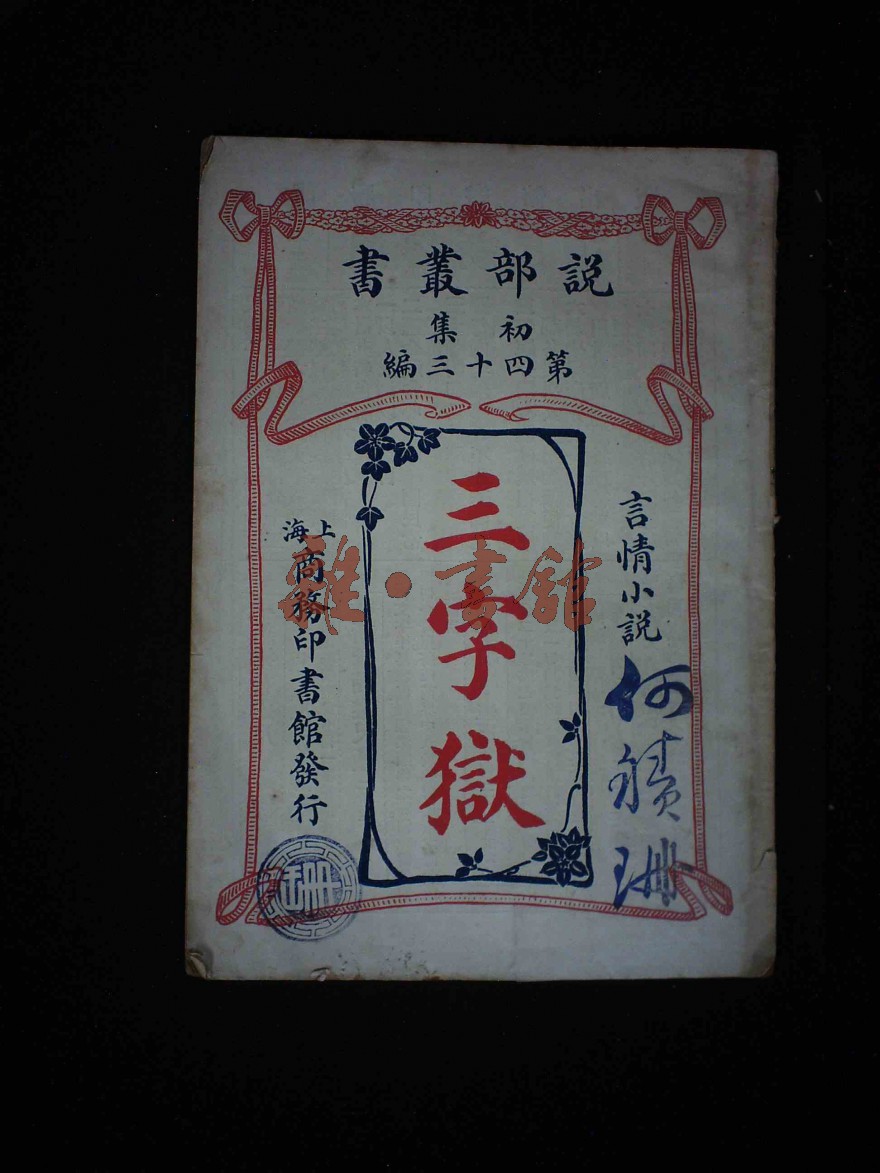 説部叢書
初集
第四十三編
言情小説
三字獄
上海
商務印書館發行
何
珊
珊
雜·書館